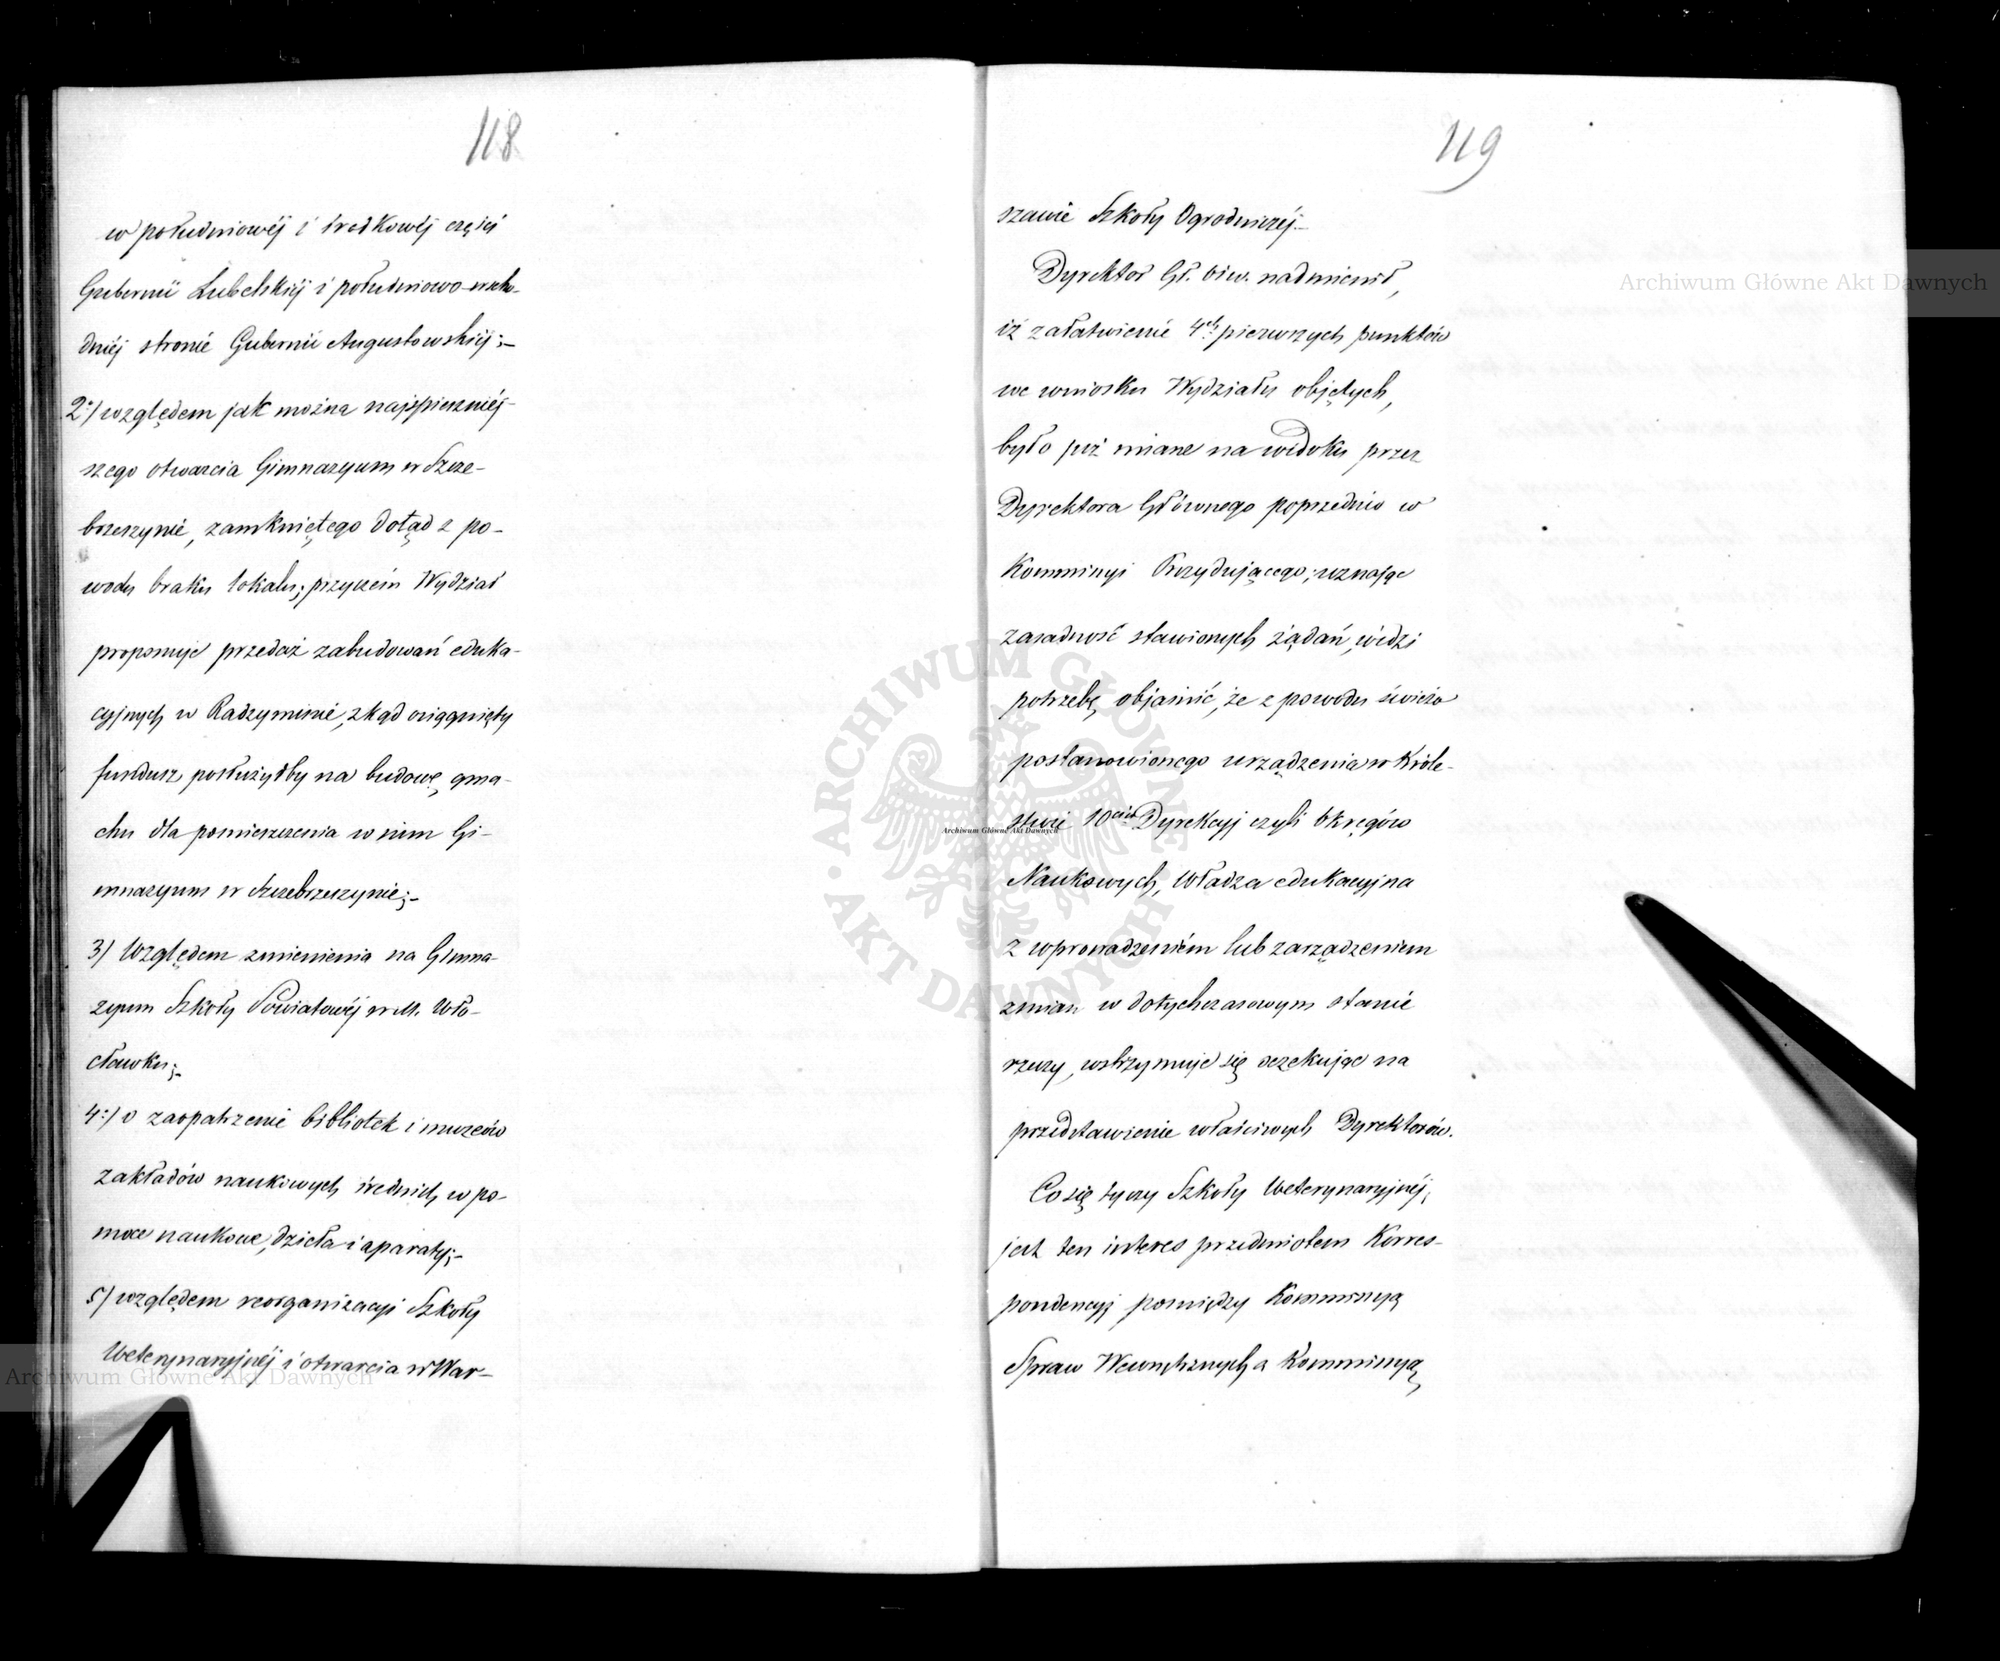 118
w południowéj i środkowéj części
Gubernii Lubelskiéj i południowo-wscho-
dniéj stronie Gubernii Augustowskiéj;-
2:/ względem jak można najspieszniéj-
szego otwarcia Gimnazyum w Szcze-
brzeszynie, zamkniętego dotąd z po-
wodu braku lokalu; przyczém Wydział
proponuje przedaż zabudowań eduka-
cyjnych w Radzyminie, zkąd osiągnięty
fundusz posłużyłby na budowę gma-
chu dla pomieszczenia w nim Gi-
mnazyum w Szczebrzeszynie;-
3/ Względem zmienienia na Gimna-
zyum Szkoły Powiatowéj w M. Wło-
cławku;-
4:/ o zaopatrzenie bibliotek i muzeów
zakładów naukowych średnich w po-
moce naukowe, dzieła i aparaty;-
5/ względem reorganizacyi Szkoły
Weterynaryjnéj i otwarcia w War-
119
szawie Szkoły Ogrodniczéj.-
Dyrektor Gł. Ośw. nadmienił,
iż załatwienie 4ch pierwszych punktów
we wniosku Wydziału objętych,
było już miane na widoku przez
Dyrektora Głównego poprzednio w
Kommissyi Prezydującego; uznając
zasadność stawionych żądań, widzi
potrzebę objaśnić, że z powodu świeżo
postanowionego urządzenia w Króle-
stwie 10ciu Dyrekcyj czyli Okręgów
Naukowych, Władza edukacyjna
z wprowadzeniém lub zarządzeniem
zmian w dotychczasowym stanie
rzeczy, wstrzymuje się oczekując na
przedstawienie właściwych Dyrektorów.
Co się tyczy Szkoły Weterynaryjnéj,
jest ten interes przedmiotem Korres-
pondencyj pomiędzy Kommissyą
Spraw Wewnętrznych a Kommissyą
Archiwum Główne Akt Dawnych
Archiwum Główne Akt Dawnych
Archiwum Główne Akt Dawnych
ARCHIWUM GŁÓWNE AKT DAWNYCH